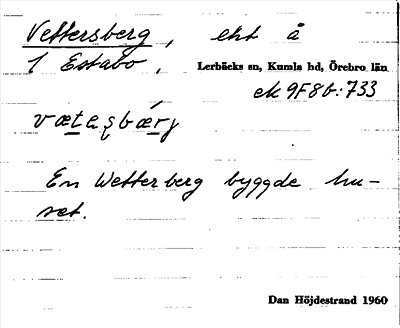 Vettersberg, eht å
1 Estabo, Lerbäcks sn, Kumla hd, Örebro län
ek 9F8b:733
vætaṣbǽrj
En Wetterberg byggde hu-
set.
Dan Höjdestrand 1960